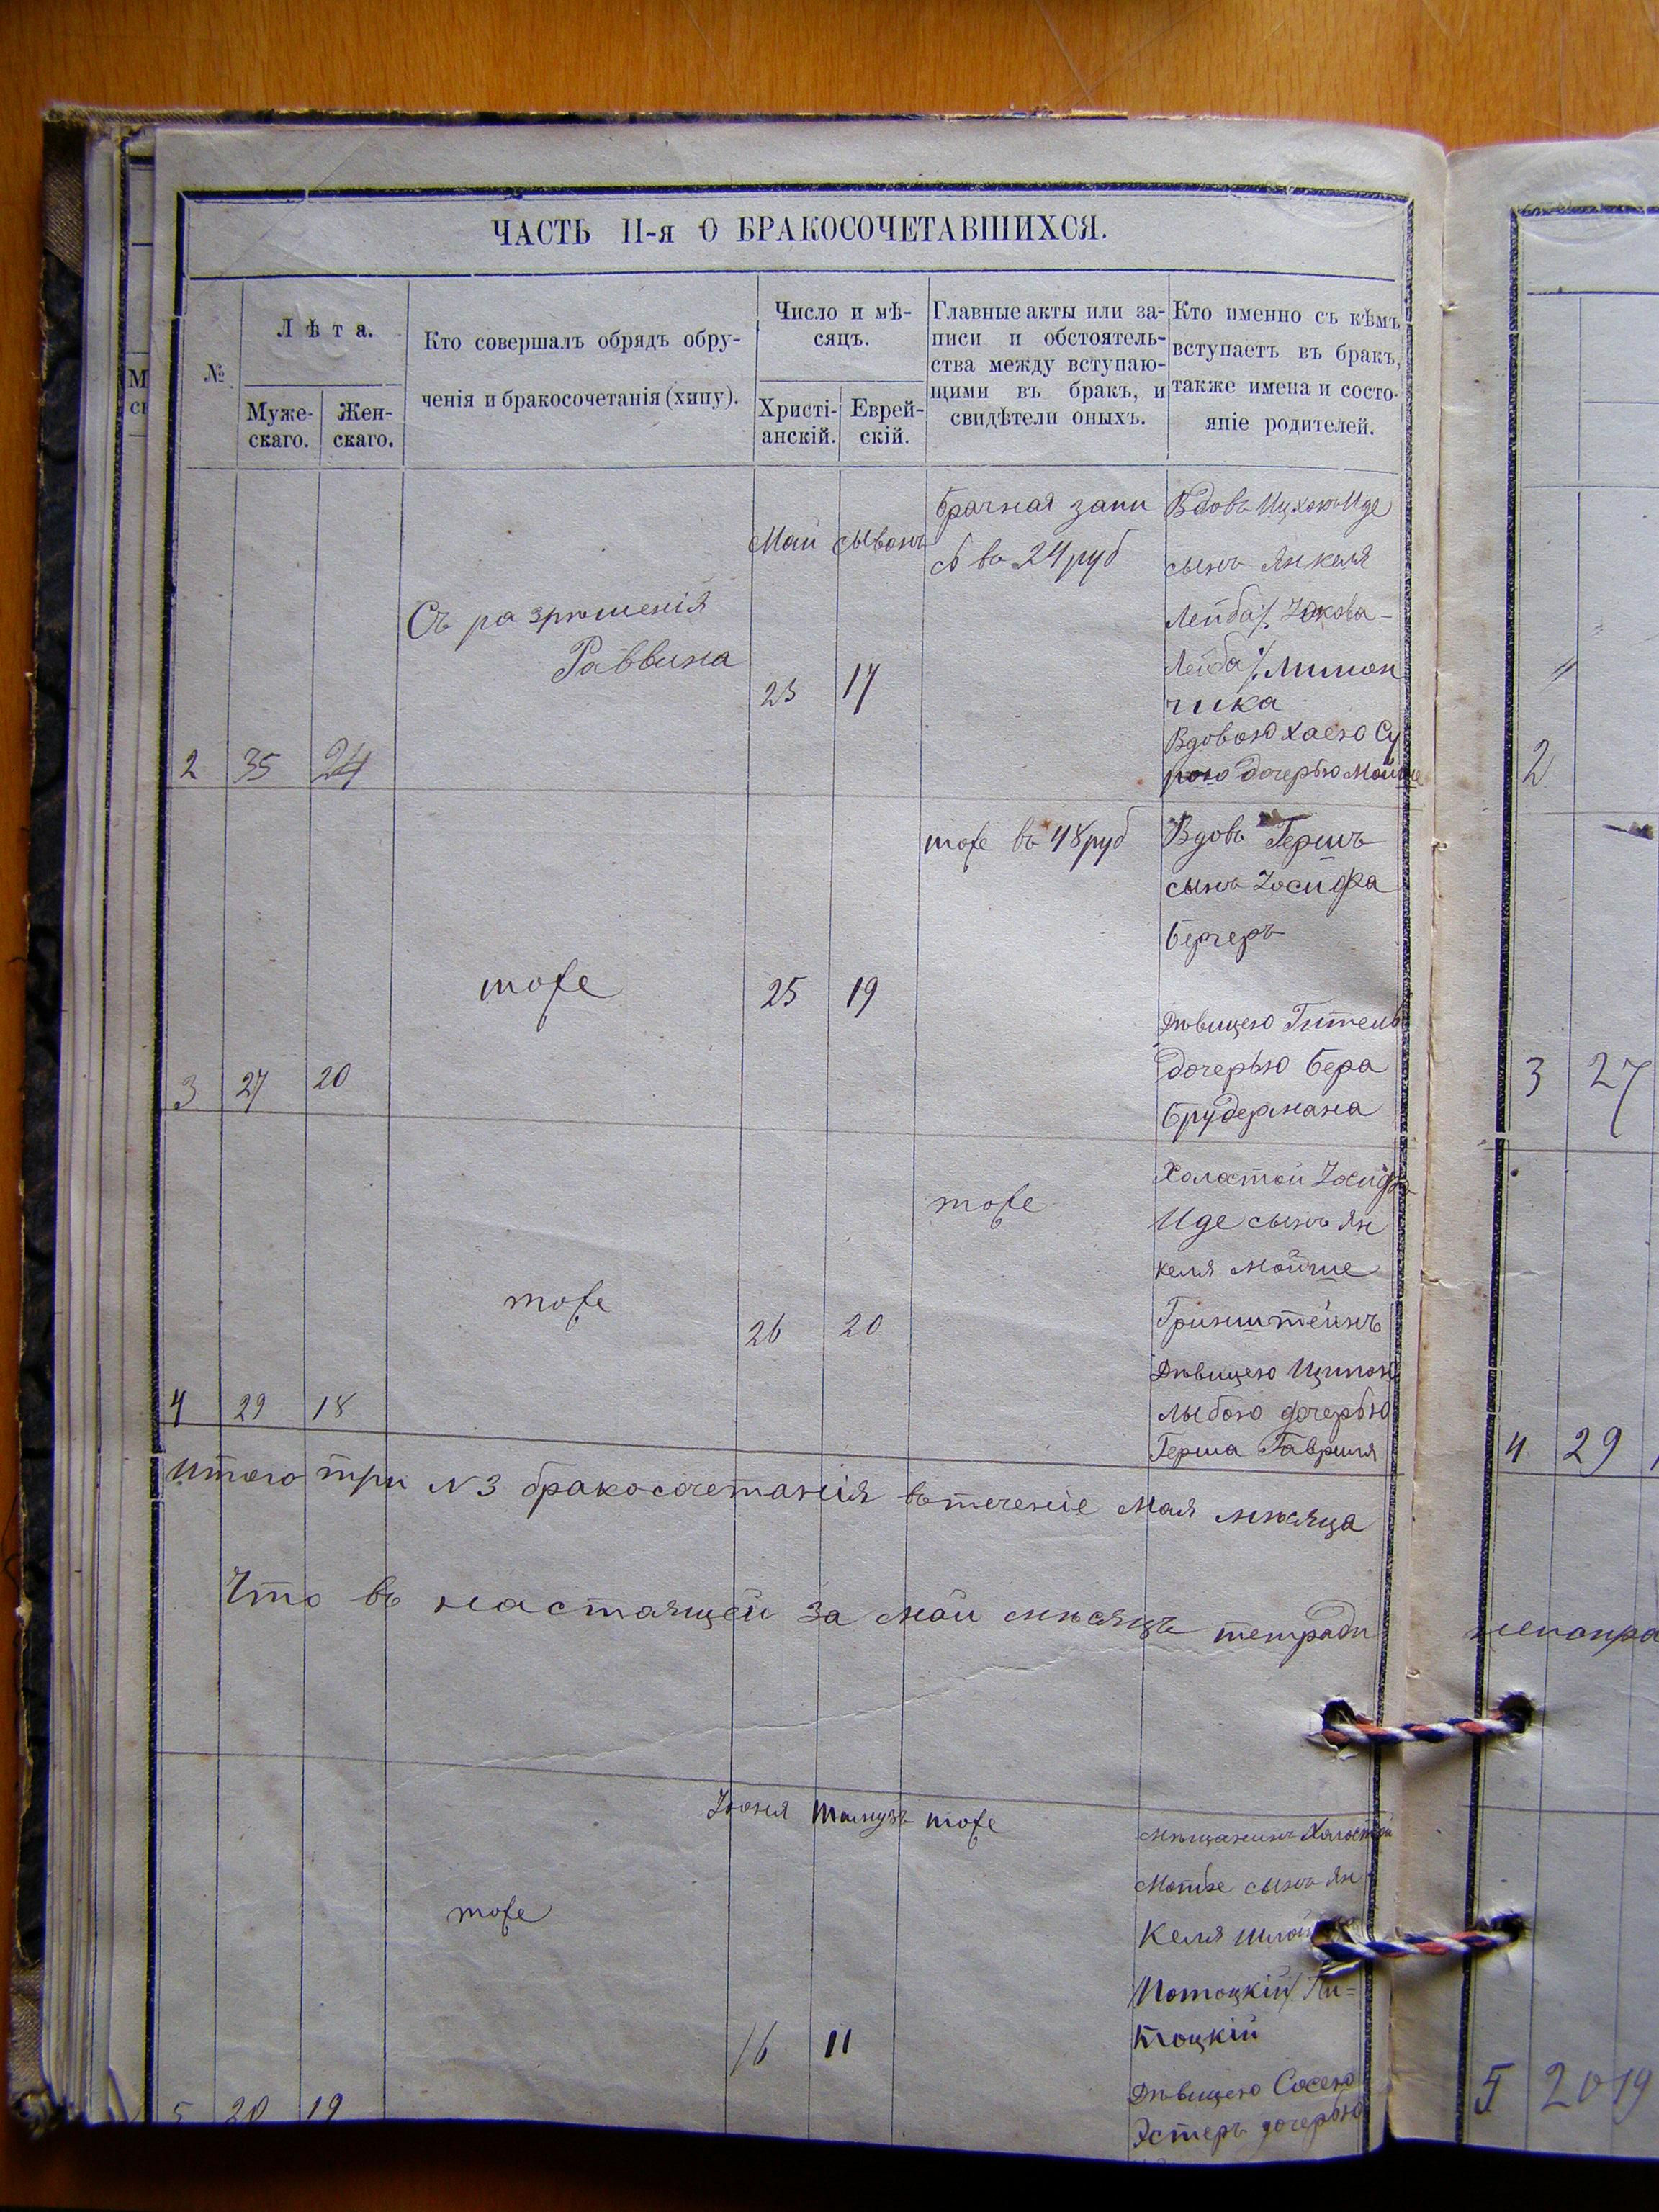 ЧАСТЬ II-я О БРАКОСОЧЕТАВШИХСЯ.
№
Лѣта.
Муже-
скаго.
Жен-
скаго.
Кто совершалъ обрядъ обру-
ченія и бракосочетанія (хипу).
Число и мѣ-
сяцъ.
Христі-
анскій.
Еврей-
скій.
Главные акты или за-
писи и обстоятель-
ства между вступаю-
щими въ бракъ, и
свидѣтели оныхъ.
Кто именно съ кѣмъ
вступаетъ въ бракъ,
также имена и состо-
яніе родителей.
2 35 24
Съ разрѣшенія
Раввина
Маи Сыванъ
23 17
брачная запи
въ 24 руб
Вдовъ Иде
сынъ Янкеля
Лейба
Лейба
чика
Вдовою Хаею Су
рою дочерью Мойше
3 27 20
тоже
25 19
тоже въ 48 руб
Вдовъ Гершъ
сынъ Іосифа
Бергеръ
Дѣвицею Гитель
дочерью Бера
Брудермана
4 29 18
тоже
26 20
тоже
Холостой Іосифъ
Иде сынъ Ян
келя Мойше
Гринштейнъ
Дѣвицею Ципою
Лыбою дочерью
Герша Гавриля
Итого три №3 бракосочетанія втеченіе Мая мѣсяца
Что въ настаящей за Маи мѣсяцъ тетради
5 20 19
тоже
Іюня Тамузъ
16 11
тоже
Мѣщанинъ Холостой
Мотье сынъ Ян
келя
/Потоцкій/ Пи=
тоцкій
Дѣвицею Сосею
Эстеръ дочерью
2
3 27
4 29
5 20 19